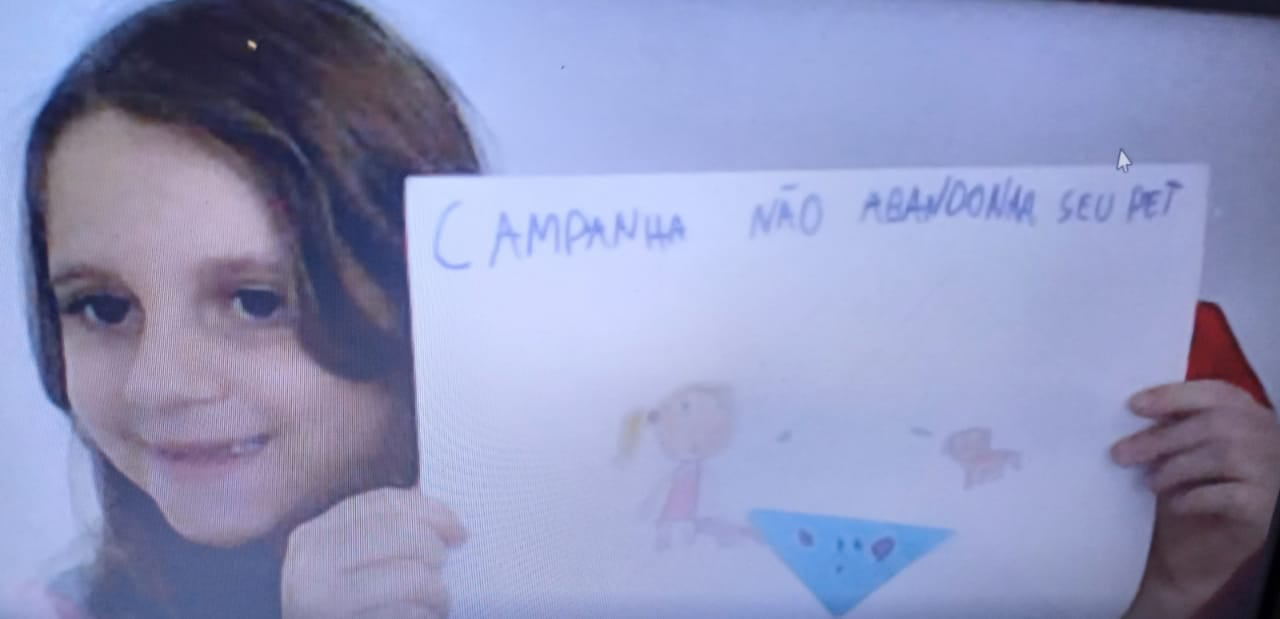 CAMPANHA NÃO ABANDONAR SEU PET